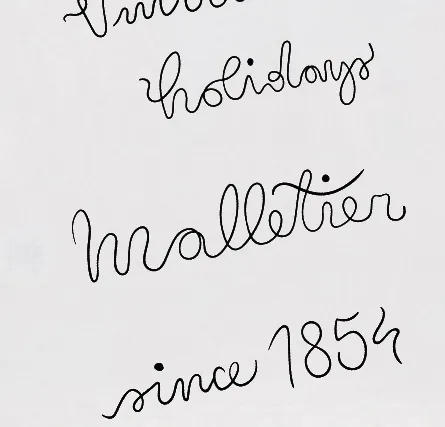 holidays
Malletier
since 1854